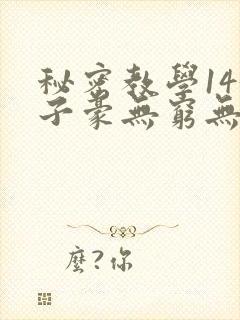 秘密教學14
子豪無窮無
麼?你